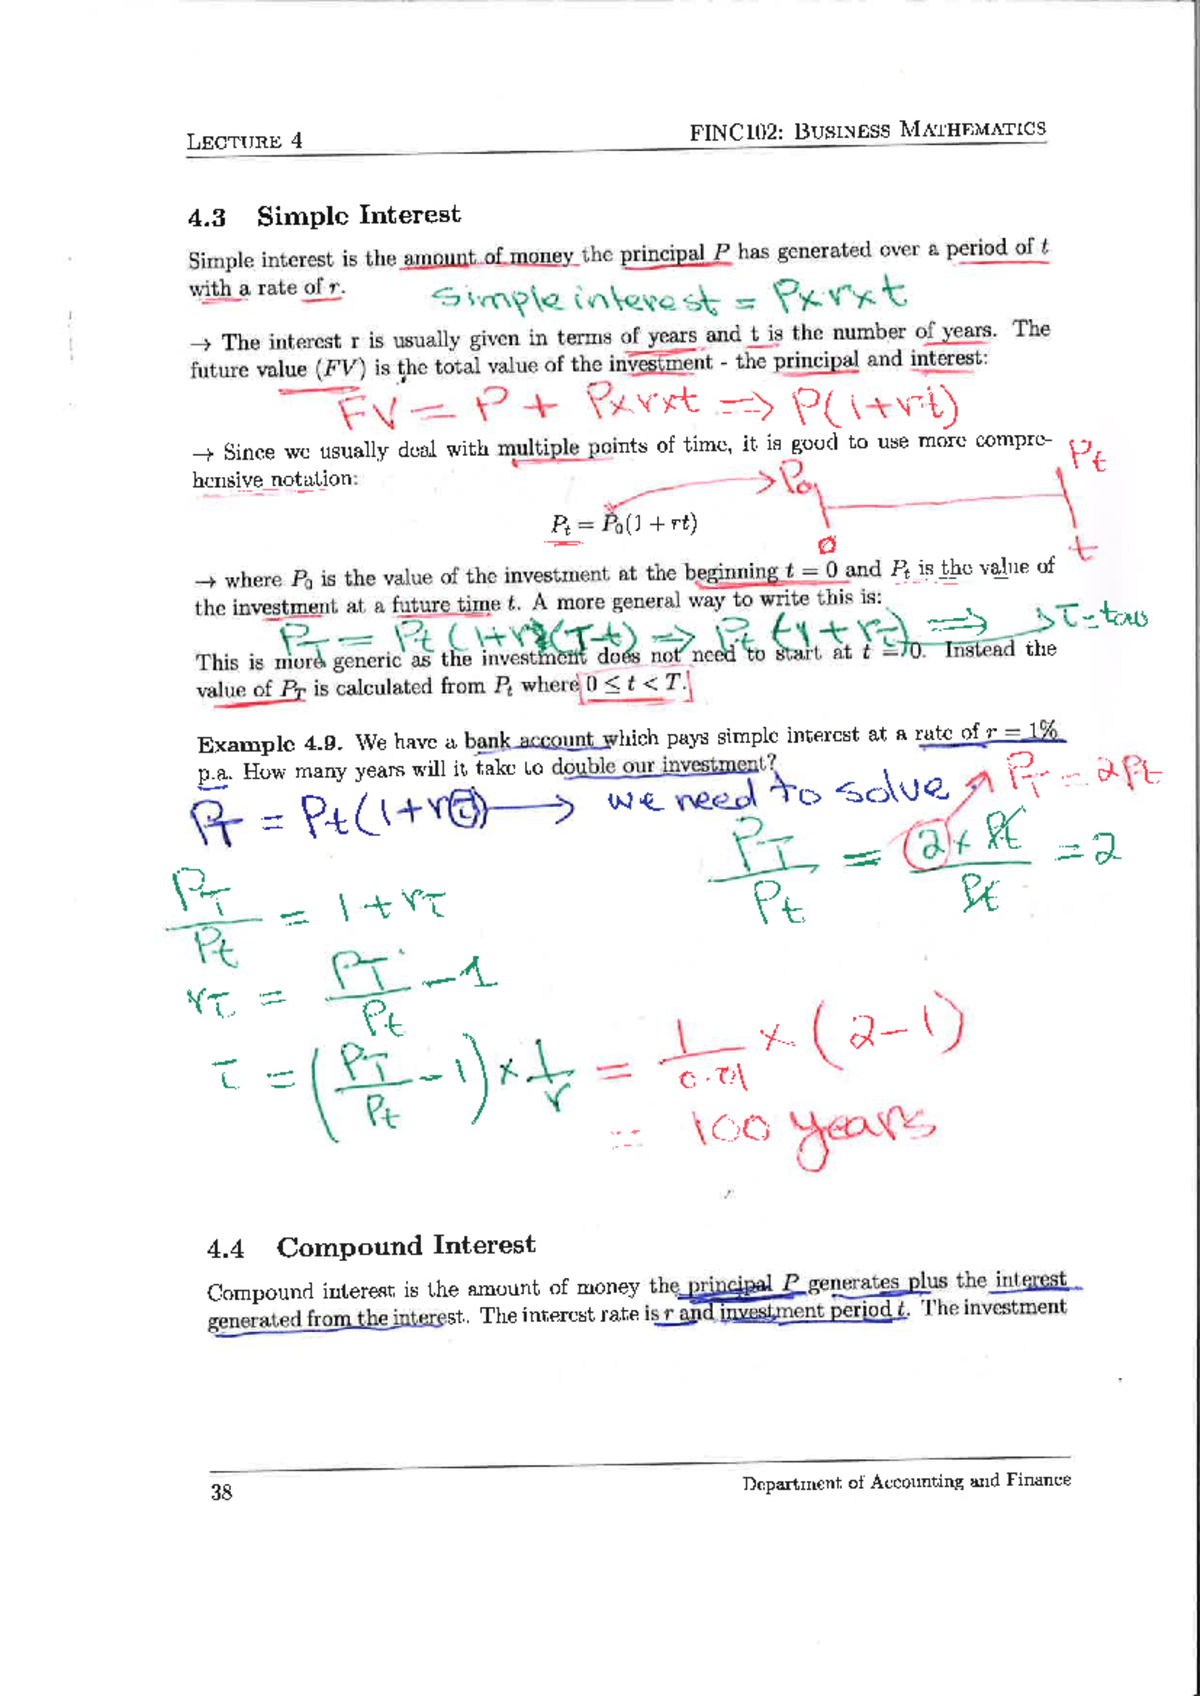 LECTURE 4
FINC102: BUSINESS MATHEMATICS
4.3 Simple Interest
Simple interest is the amount of money the principal P has generated over a period of t
with a rate of r.
Simple interest = P×r×t
→ The interest r is usually given in terms of years and t is the number of years. The
future value (FV) is the total value of the investment - the principal and interest:
FV = P + P×r×t => P(1+rt)
→ Since we usually deal with multiple points of time, it is good to use more compre-
hensive notation:
P₀ Pt
Pt = P₀(1 + rt)
0 t
→ where P₀ is the value of the investment at the beginning t = 0 and Pt is the value of
the investment at a future time t. A more general way to write this is:
PT = Pt(1+r(T-t) => Pt(1+rτ) => τ=tau
This is more generic as the investment does not need to start at t = 0. Instead the
value of PT is calculated from Pt where 0 ≤ t < T.
Example 4.9. We have a bank account which pays simple interest at a rate of r = 1%
p.a. How many years will it take to double our investment?
PT = Pt(1+rτ) → we need to solve PT = 2Pt
PT/Pt = 2×Pt/Pt = 2
PT/Pt = 1+rτ
rτ = PT/Pt - 1
τ = (PT/Pt - 1) × 1/r = 1/0.01 × (2-1)
= 100 years
4.4 Compound Interest
Compound interest is the amount of money the principal P generates plus the interest
generated from the interest. The interest rate is r and investment period t. The investment
38
Department of Accounting and Finance